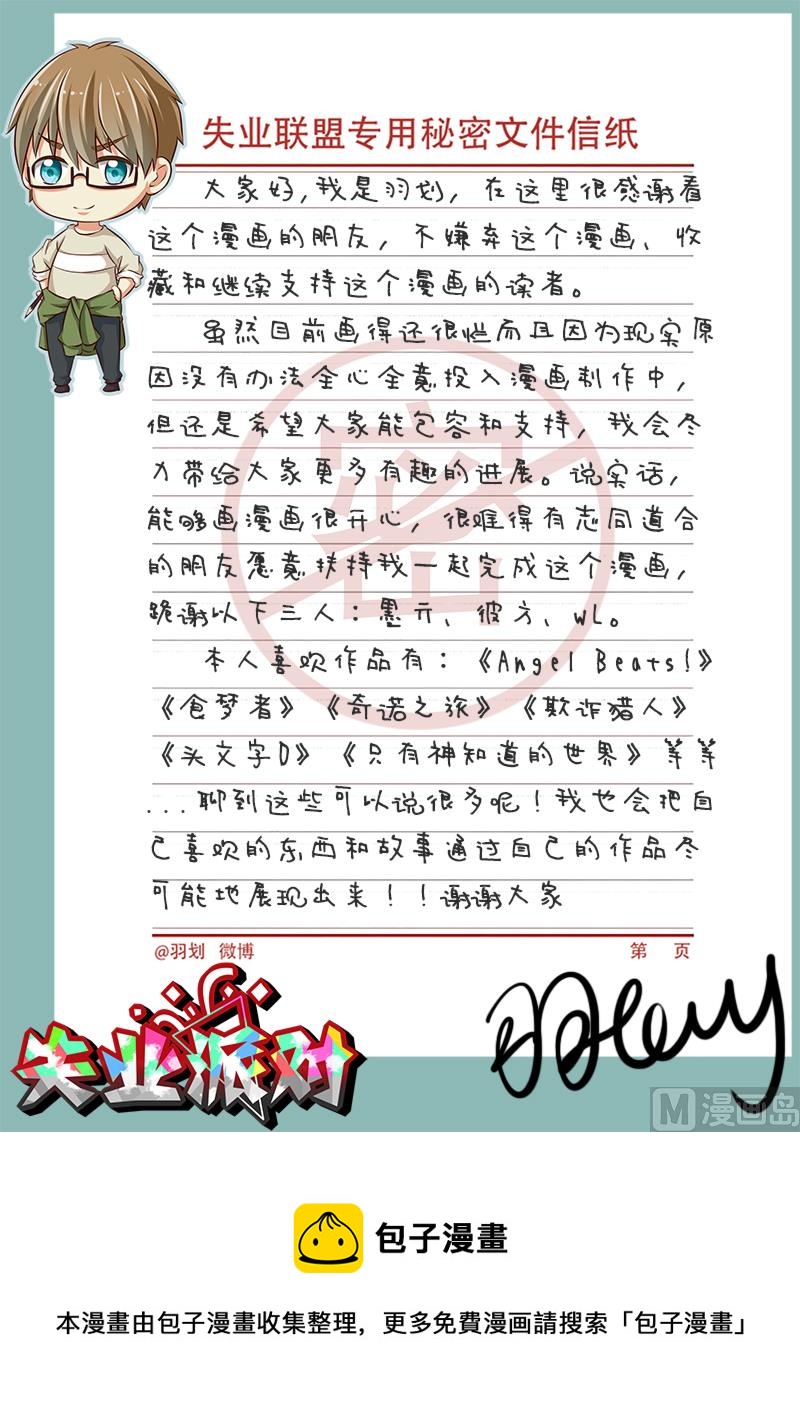 失业联盟专用秘密文件信纸
大家好,我是羽划，在这里很感谢看
这个漫画的朋友，不嫌弃这个漫画、收
藏和继续支持这个漫画的读者。
虽然目前画得还很烂而且因为现实原
因没有办法全心全意投入漫画制作中，
但还是希望大家能包容和支持，我会尽
力带给大家更多有趣的进展。说实话，
能够画漫画很开心，很难得有志同道合
的朋友愿意扶持我一起完成这个漫画，
跪谢以下三人：墨亓、彼方、WL。
本人喜欢作品有：《Angel Beats!》
《食梦者》《奇诺之旅》《欺诈猎人》
《头文字D》《只有神知道的世界》等等
...聊到这些可以说很多呢！我也会把自
己喜欢的东西和故事通过自己的作品尽
可能地展现出来！！谢谢大家
密
@羽划 微博
第 页
失业派对
M 漫画岛
包子漫畫
本漫畫由包子漫畫收集整理，更多免費漫画請搜索「包子漫畫」